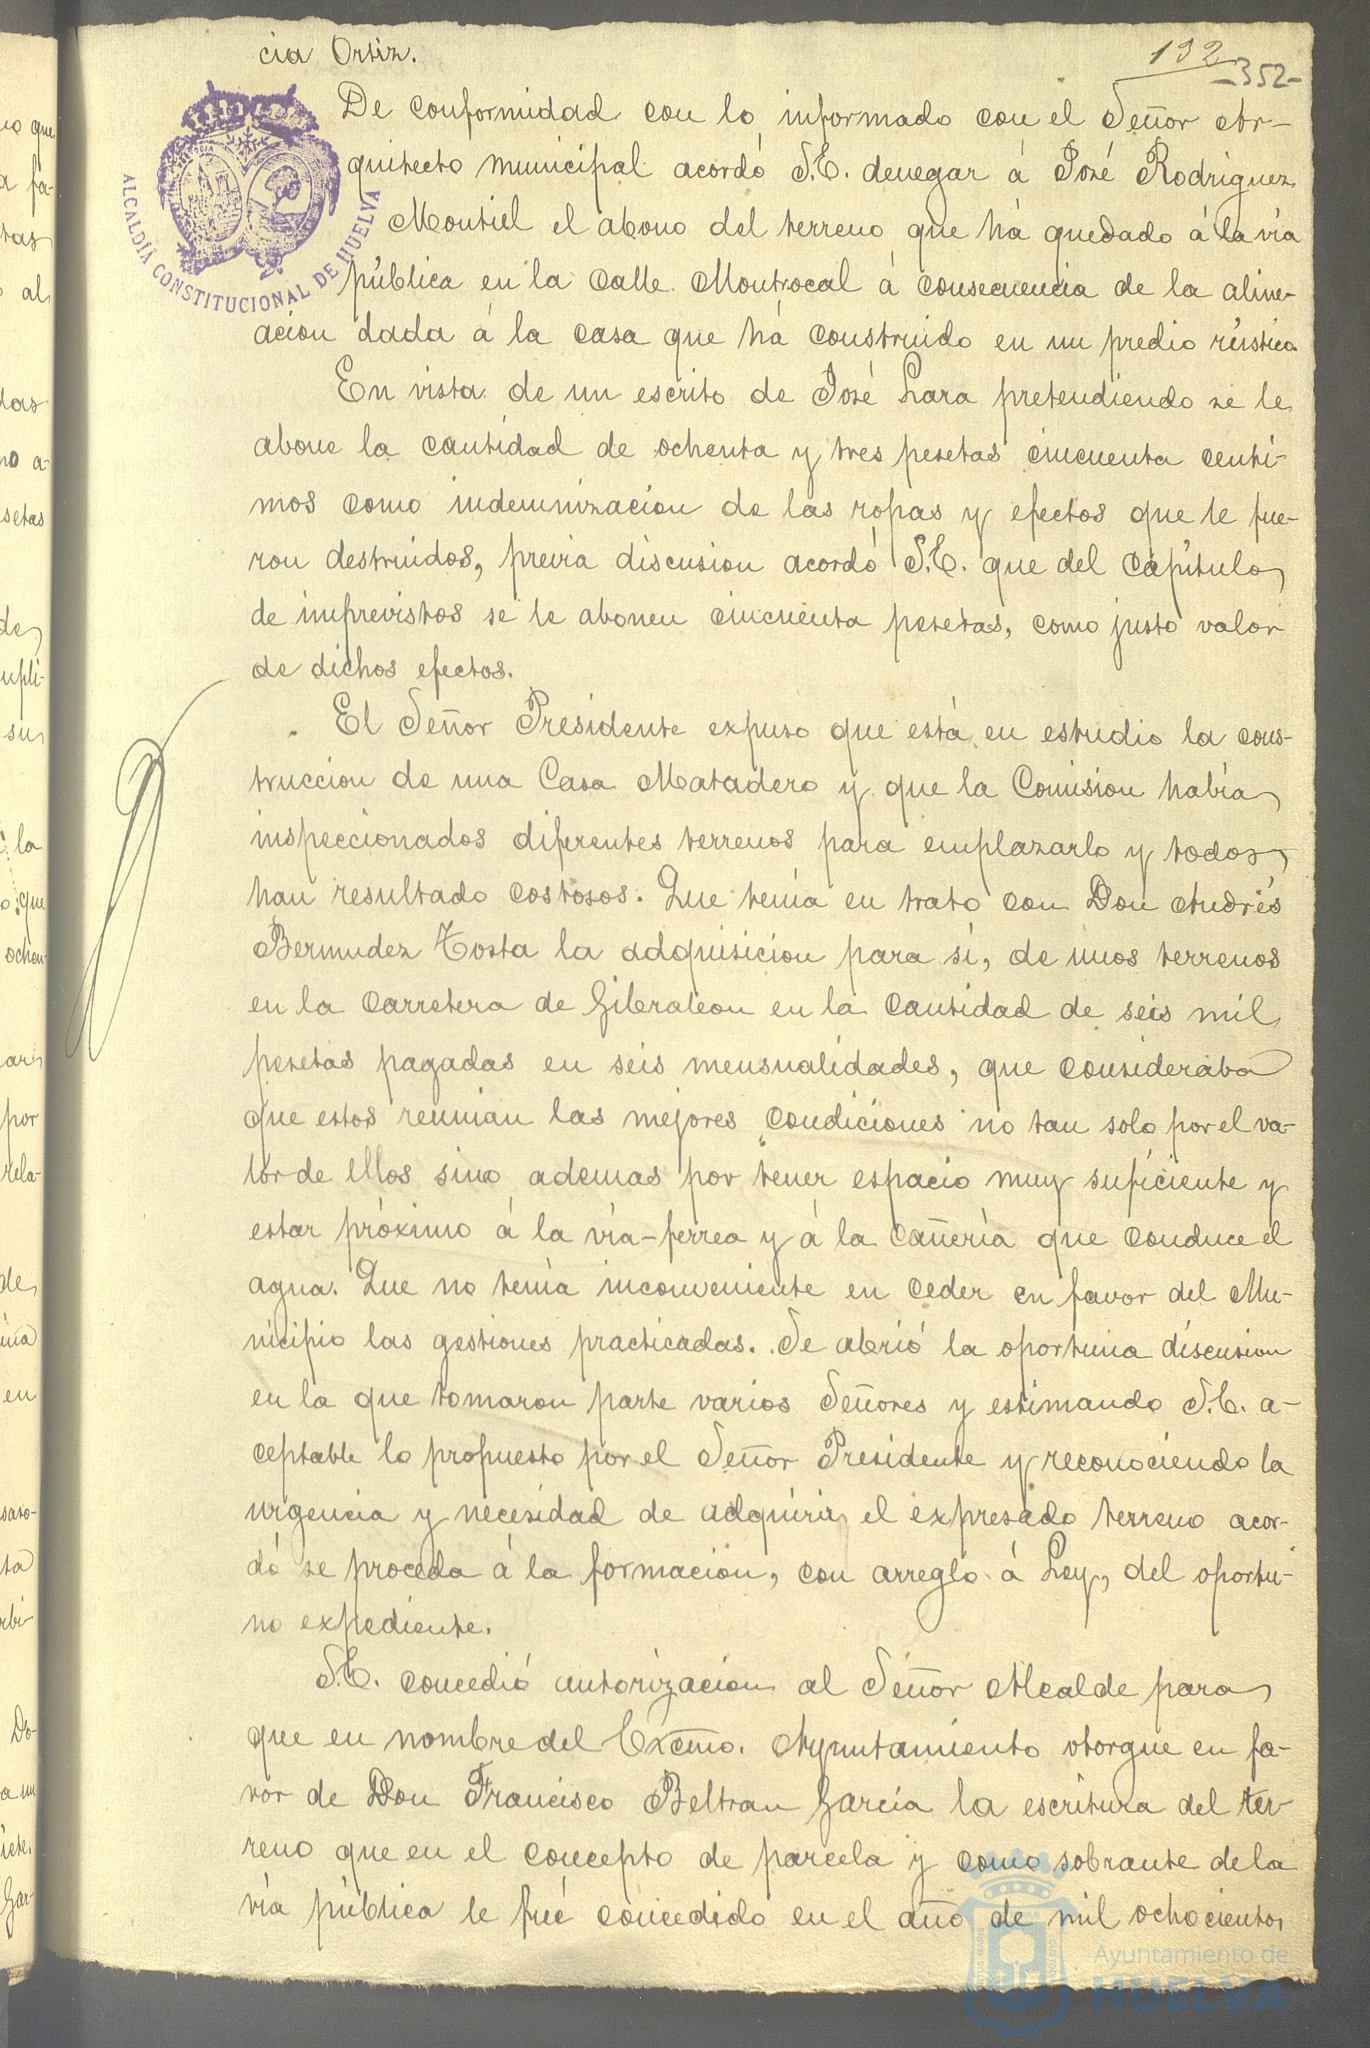 cia Ortiz.
132
-352-
De conformidad con lo informado con el Señor Ar-
quitecto municipal acordó S.E. denegar á José Rodriguez
Montiel el abono del terreno que há quedado á la via
pública en la calle Montrocal á consecuencia de la aline-
acion dada á la casa que há construido en un predio rústico.
En vista de un escrito de José Lara pretendiendo se le
abone la cantidad de ochenta y tres pesetas cincuenta centi-
mos como indemnizacion de las ropas y efectos que le fue-
ron destruidos, previa discusion acordó S.E. que del capítulo
de imprevistos se le abonen cincuenta pesetas, como justo valor
de dichos efectos.
El Señor Presidente expuso que está en estudio la cons-
truccion de una Casa Matadero y que la Comision había
inspeccionados diferentes terrenos para emplazarlo y todos
han resultado costosos. Que tenía en trato con Don Andrés
Bermudez Tosta la adquisicion para sí, de unos terrenos
en la carretera de Gibraleon en la cantidad de seis mil
pesetas pagadas en seis mensualidades, que consideraba
que estos reunian las mejores condiciones no tan solo por el va-
lor de ellos sino ademas por tener espacio muy suficiente y
estar próximo á la vía-ferrea y á la cañería que conduce el
agua. Que no tenía inconveniente en ceder en favor del Mu-
nicipio las gestiones practicadas. Se abrió la oportuna discusion
en la que tomaron parte varios Señores y estimando S.E. a-
ceptable lo propuesto por el Señor Presidente y reconociendo la
urgencia y necesidad de adquirir el expresado terreno acor-
dó se proceda á la formacion, con arreglo á Ley, del oportu-
no expediente.
S.E. concedió autorizacion al Señor Alcalde para
que en nombre del Excmo. Ayuntamiento otorgue en fa-
vor de Don Francisco Beltran Garcia la escritura del ter-
reno que en el concepto de parcela y como sobrante de la
vía pública le fué concedido en el año de mil ochocientos
ALCALDIA CONSTITUCIONAL DE HUELVA
Ayuntamiento de
HUELVA